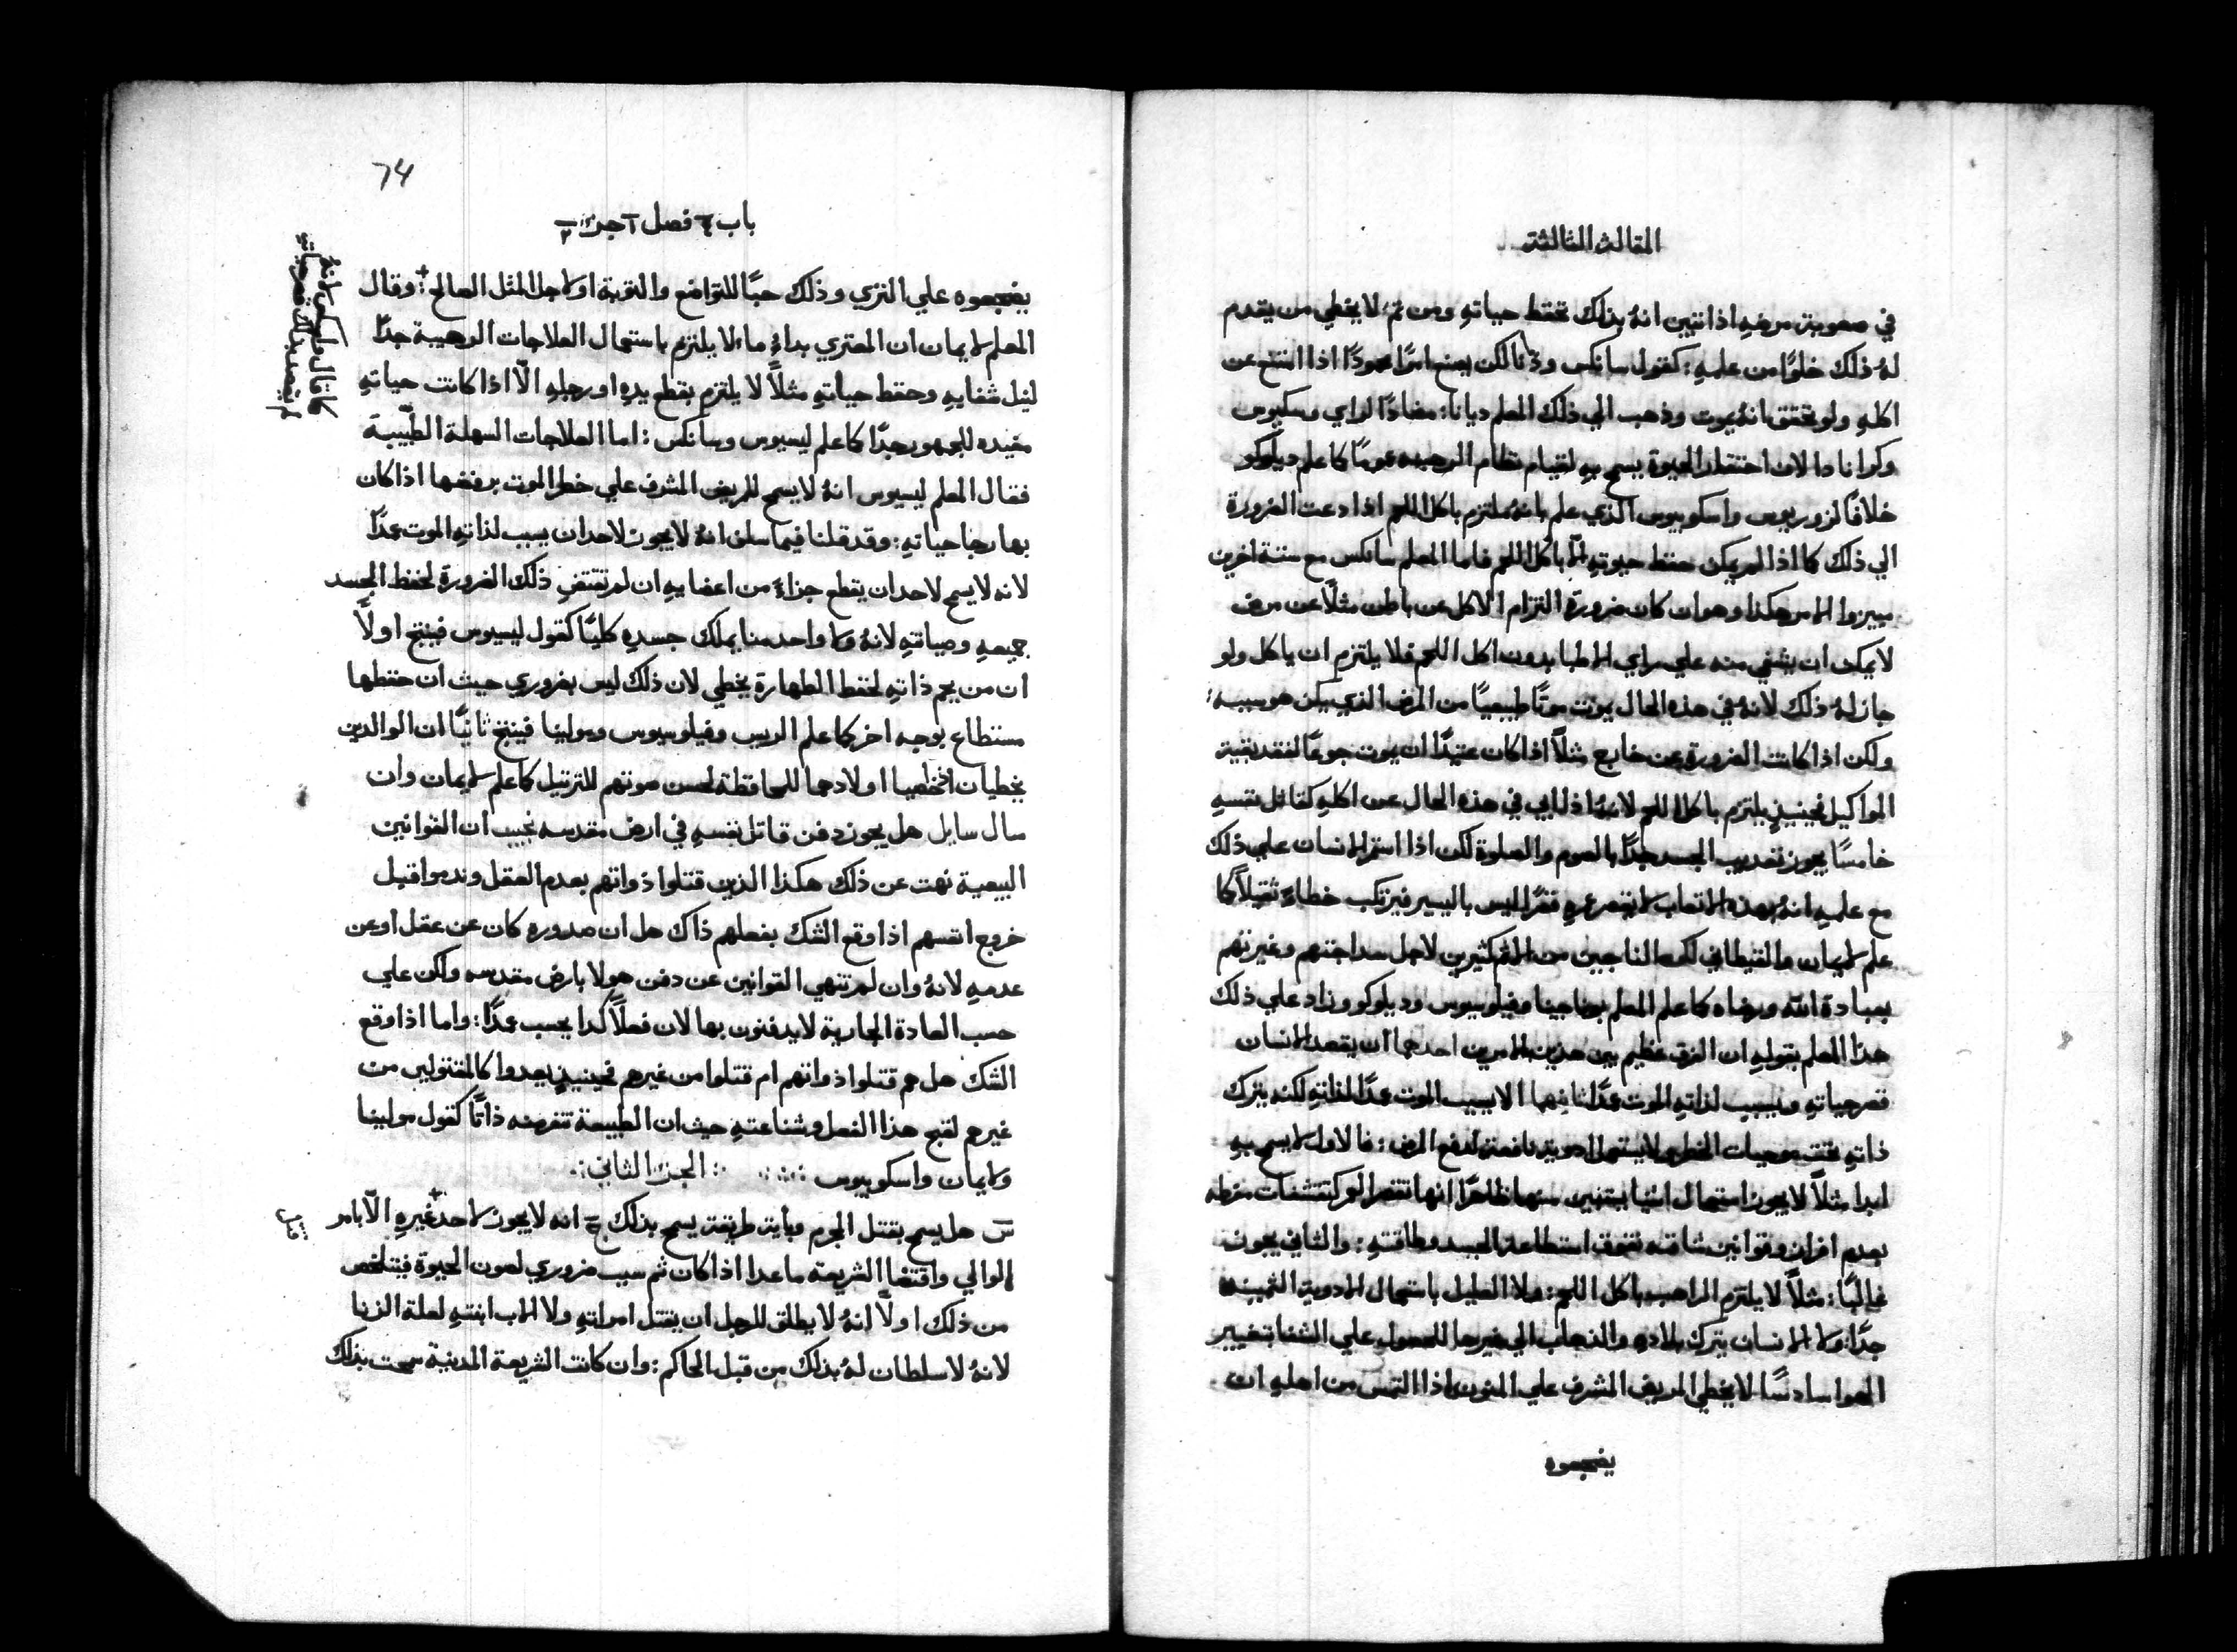 المقالة الثالثة
في صعوبة مرضهِ اذا تبين انهُ بذلك تحفظ حياتهِ ومن ثم لا يخطي من يقدم
لهُ ذلك خلوًا من علمهِ: كقول سانكس لكن يصنع امرًا اذا امتنع عن
اكلهِ ولو تحقق انهُ يموت وذهب الي ذلك المعلم ديانا: مضادًا لراي وسكيوس
لان احتقار الحيوة يسمح بهِ لقيام نظام الرهبنه عمومًا كما علم ديلوكو
خلافًا لزوربوس واسكوبيوس الذي علم بانهُ ملتزم باكل اللحم اذا دعت الضرورة
الي ذلك كما اذا لم يمكن حفظ حيوتهِ الّا باكل اللحم فاما المعلم سانكس مع ستة اخرين
ميزوا الامر هكذا وهو ان كان ضرورة التزام الاكل عن باطن مثلًا عن مرض
لا يمكن ان يشفي منه علي راي الاطبا بدون اكل اللحم فلا يلتزم ان ياكل ولو
جاز لهُ ذلك لانهُ في هذه الحال يموت موتًا طبيعيًا من المرض الذي يكن هو سببه
ولكن اذا كانت الضرورة عن خارج مثلًا اذا كان عتيدًا ان يموت جوعًا لفقد بقية
المواكيل فحينيذٍ يلتزم باكل اللحم لانهُ اذا ابي في هذه الحال عن اكلهِ كقاتل نفسهِ
خامسًا يجوز تعذيب الجسد جدًا بالصوم والصلوة لكن اذا استمر الانسان علي ذلك
مع علمهِ انهُ بهذه الاتعاب يقصر عمره قصرًا ليس باليسير فيرتكب خطاءً ثقيلًا كما
علم لايمان والقيطاني لكنه الناجيين من الاثم كثيرين لاجل سداجتهم وغيرتهم
بعبادة الله ورضاه كما علم المعلم بوناجينا وفيلوسيوس وديلوكو وزاد علي ذلك
هذا المعلم بقولهِ ان الفرق عظيم بين هذين الامرين احدهما ان يقصد الانسان
قصر حياتهِ ويسبب لذاتهِ الموت عمدًا ثانيهما الا يسبب الموت عمدًا لذاتهِ لكنه يترك
ذاتهِ تحت موجبات الخطر لا يستعمل ادوية نافعة لدفع المرض: فالاول لا يسمح بهِ
ابدا مثلًا لا يجوز استعمال اشيا يتبين منها ظاهرًا انها تقصر العمر كتقشفات مفرطه
بعدم افراز وقوانين شاقه تفوق استطاعة الجسد وطاقتهِ: والثاني يجوز
غالبًا: مثلًا لا يلتزم الراهب باكل اللحم: ولا العليل باستعمال الادوية الثمينه
جدًا ولا الانسان يترك بلاده والذهاب الي غيرها للحصول علي الشفا بتغيير
الهوا سادسًا لا يخطي المريض المشرف علي المنون اذا التمس من اهلهِ ان
يضجعوه
74
باب ٤ فصل ١ جزء ٢
يضجعوه علي الثري وذلك حبًا للتواضع والتوبة او لاجل المثل الصالح: وقال
المعلم لايمان ان المعتري بداءٍ ما لا يلتزم باستعمال العلاجات الرهيبة جدًا
لنيل شفايهِ وحفظ حياتهِ مثلًا لا يلتزم بقطع يدهِ او رجلهِ الّا اذا كانت حياتهِ
مفيده للجمهور جدًا كما علم ليسيوس وسانكس: اما العلاجات السهلة الطبيبة
فقال المعلم ليسيوس انهُ لا يسمح للمريض المشرف علي خطر الموت برفضها اذا كان
بها رجا حياتهِ: وقد قلنا فيما سلف انهُ لا يجوز لاحد ان يسبب لذاتهِ الموت عمدًا
لانه لا يسمح لاحد ان يقطع جزاءً من اعضايهِ ان لم تقتضِ ذلك الضرورة لحفظ الجسد
جميعهِ وصيانتهِ لانهُ ولا واحد منا يملك جسدهِ كليًا كقول ليسيوس فينتج اولًا
ان من يجم ذاتهِ لحفظ الطهارة يخطي لان ذلك ليس بضروري حيث ان حفظها
مستطاع بوجه اخر كما علم الريب وفيلوسيوس ومولينا فينتج ثانيًا ان الوالدين
يخطيان اذ خصيا اولادهما للمحافظة لحسن صوتهم للترتيل كما علم لايمان وان
سال سايل هل يجوز دفن قاتل نفسهِ في ارض مقدسه نجيب ان القوانين
البيعية نهت عن ذلك هكذا الذين قتلوا ذواتهم بعدم العقل وندموا قبل
خروج انفسهم اذا وقع الشك بفعلهم ذاك هل ان صدوره كان عن عقل او عن
عدمهِ لانهُ وان لم تنهي القوانين عن دفن هولا بارض مقدسه ولكن علي
حسب العادة الجارية لا يدفنون بها لان فعلًا كذا يحسب عمدًا: واما اذا وقع
الشك هل هم قتلوا ذواتهم ام قتلوا من غيرهم فحينيذٍ يعدوا كالمقتولين من
غيرهم لقبح هذا الفعل وشناعتهِ حيث ان الطبيعة تنفر منه ذاتًا كقول مولينا
ولايمان واسكوبيوس ∴ الجزء الثاني ∴
س هل يسمح بقتل المجرم وباية طريقة يسمح بذلك ج انه لا يجوز لاحد غيرهِ الّا بامر
الوالي واقتضا الشريعه ما عدا اذا كان ثم سبب ضروري لصون الحيوة فيتلخص
من ذلك اولًا انهُ لا يطلق للرجل ان يقتل امراتهِ ولا الاب ابنتهِ لعلة الزنا
لانهُ لا سلطان لهُ بذلك من قبل الحاكم: وان كانت الشريعة المدنية سمحت بذلك
قتل